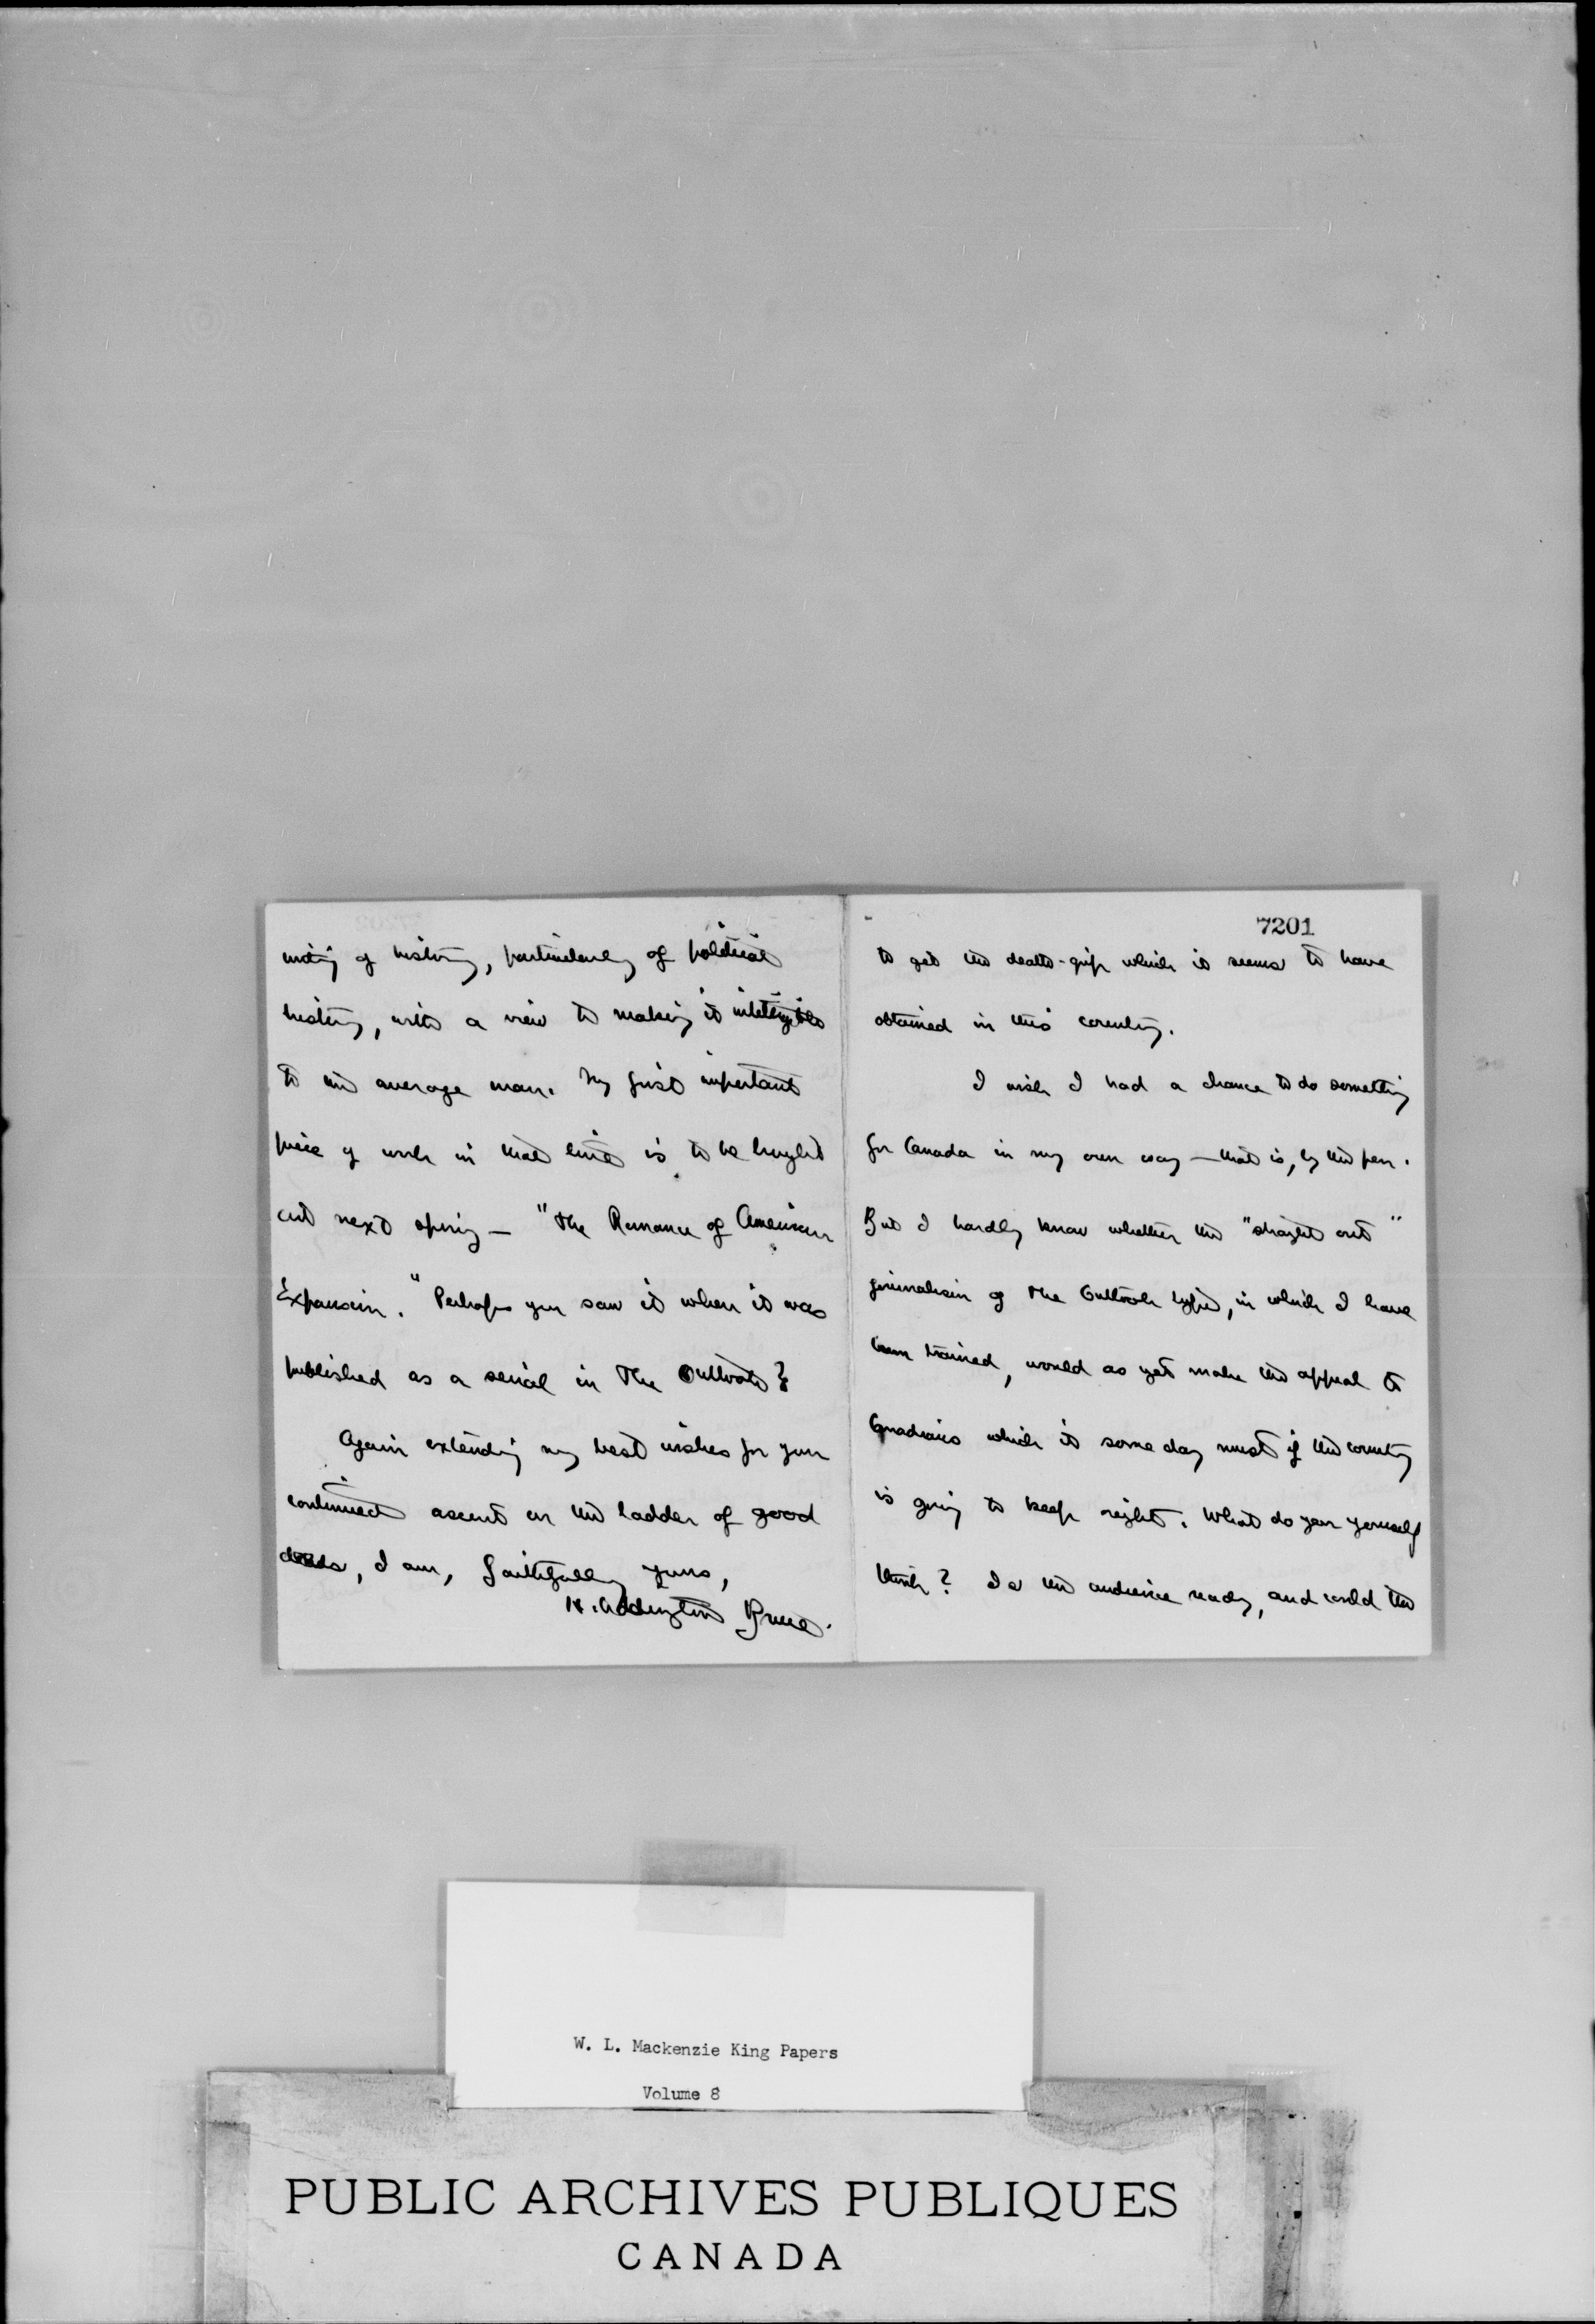 writing of history, particularly of political
history, with a view to making it intelligible
to the average man. My first important
piece of work in that line is to be brought
out next spring — "The Romance of American
Expansion." Perhaps you saw it when it was
published as a serial in The Outlook?
Again extending my best wishes for your
continued ascent on the ladder of good
deeds, I am, faithfully yours,
H. Addington Bruce.
7201
to get the death-grip which it seems to have
obtained in this country.
I wish I had a chance to do something
for Canada in my own way — that is, by the pen.
But I hardly know whether the "straight out"
journalism of The Outlook type, in which I have
been trained, would as yet make the appeal to
Canadians which it some day must if the country
is going to keep right. What do you yourself
think? Is the audience ready, and could the
W. L. Mackenzie King Papers
Volume 8
PUBLIC ARCHIVES PUBLIQUES
CANADA